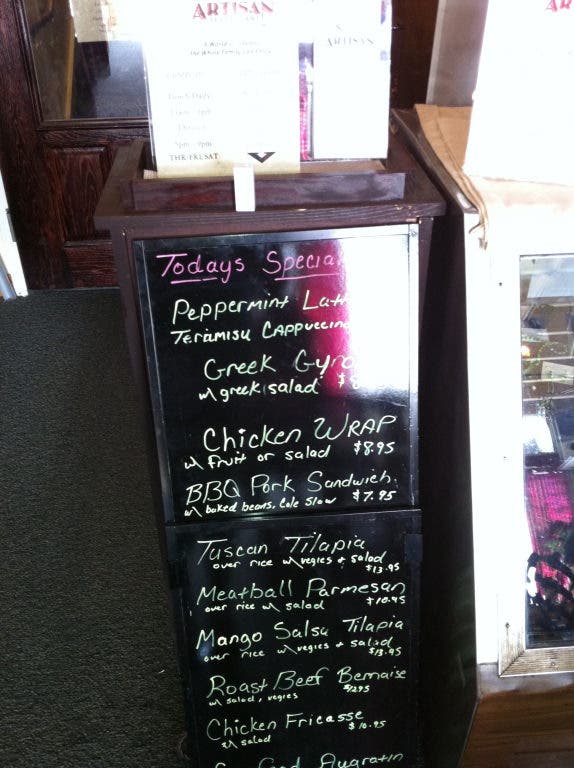 ARTISAN
ARTISAN
THR/FR/SAT
Todays Specia
Peppermint Latt
Teramisu Cappuccino
Greek Gyro
w/ greek salad $8
Chicken WRAP
w/ fruit or salad $8.95
BBQ Pork Sandwich
w/ baked beans, Cole Slow $7.95
Tuscan Tilapia
over rice w/ vegies + salad
$13.95
Meatball Parmesan
over rice w/ salad $10.95
Mango Salsa Tilapia
over rice w/ vegies + salad
$13.95
Roast Beef Bernaise
w/ salad, vegies $12.95
Chicken Fricasse
w/ salad $10.95